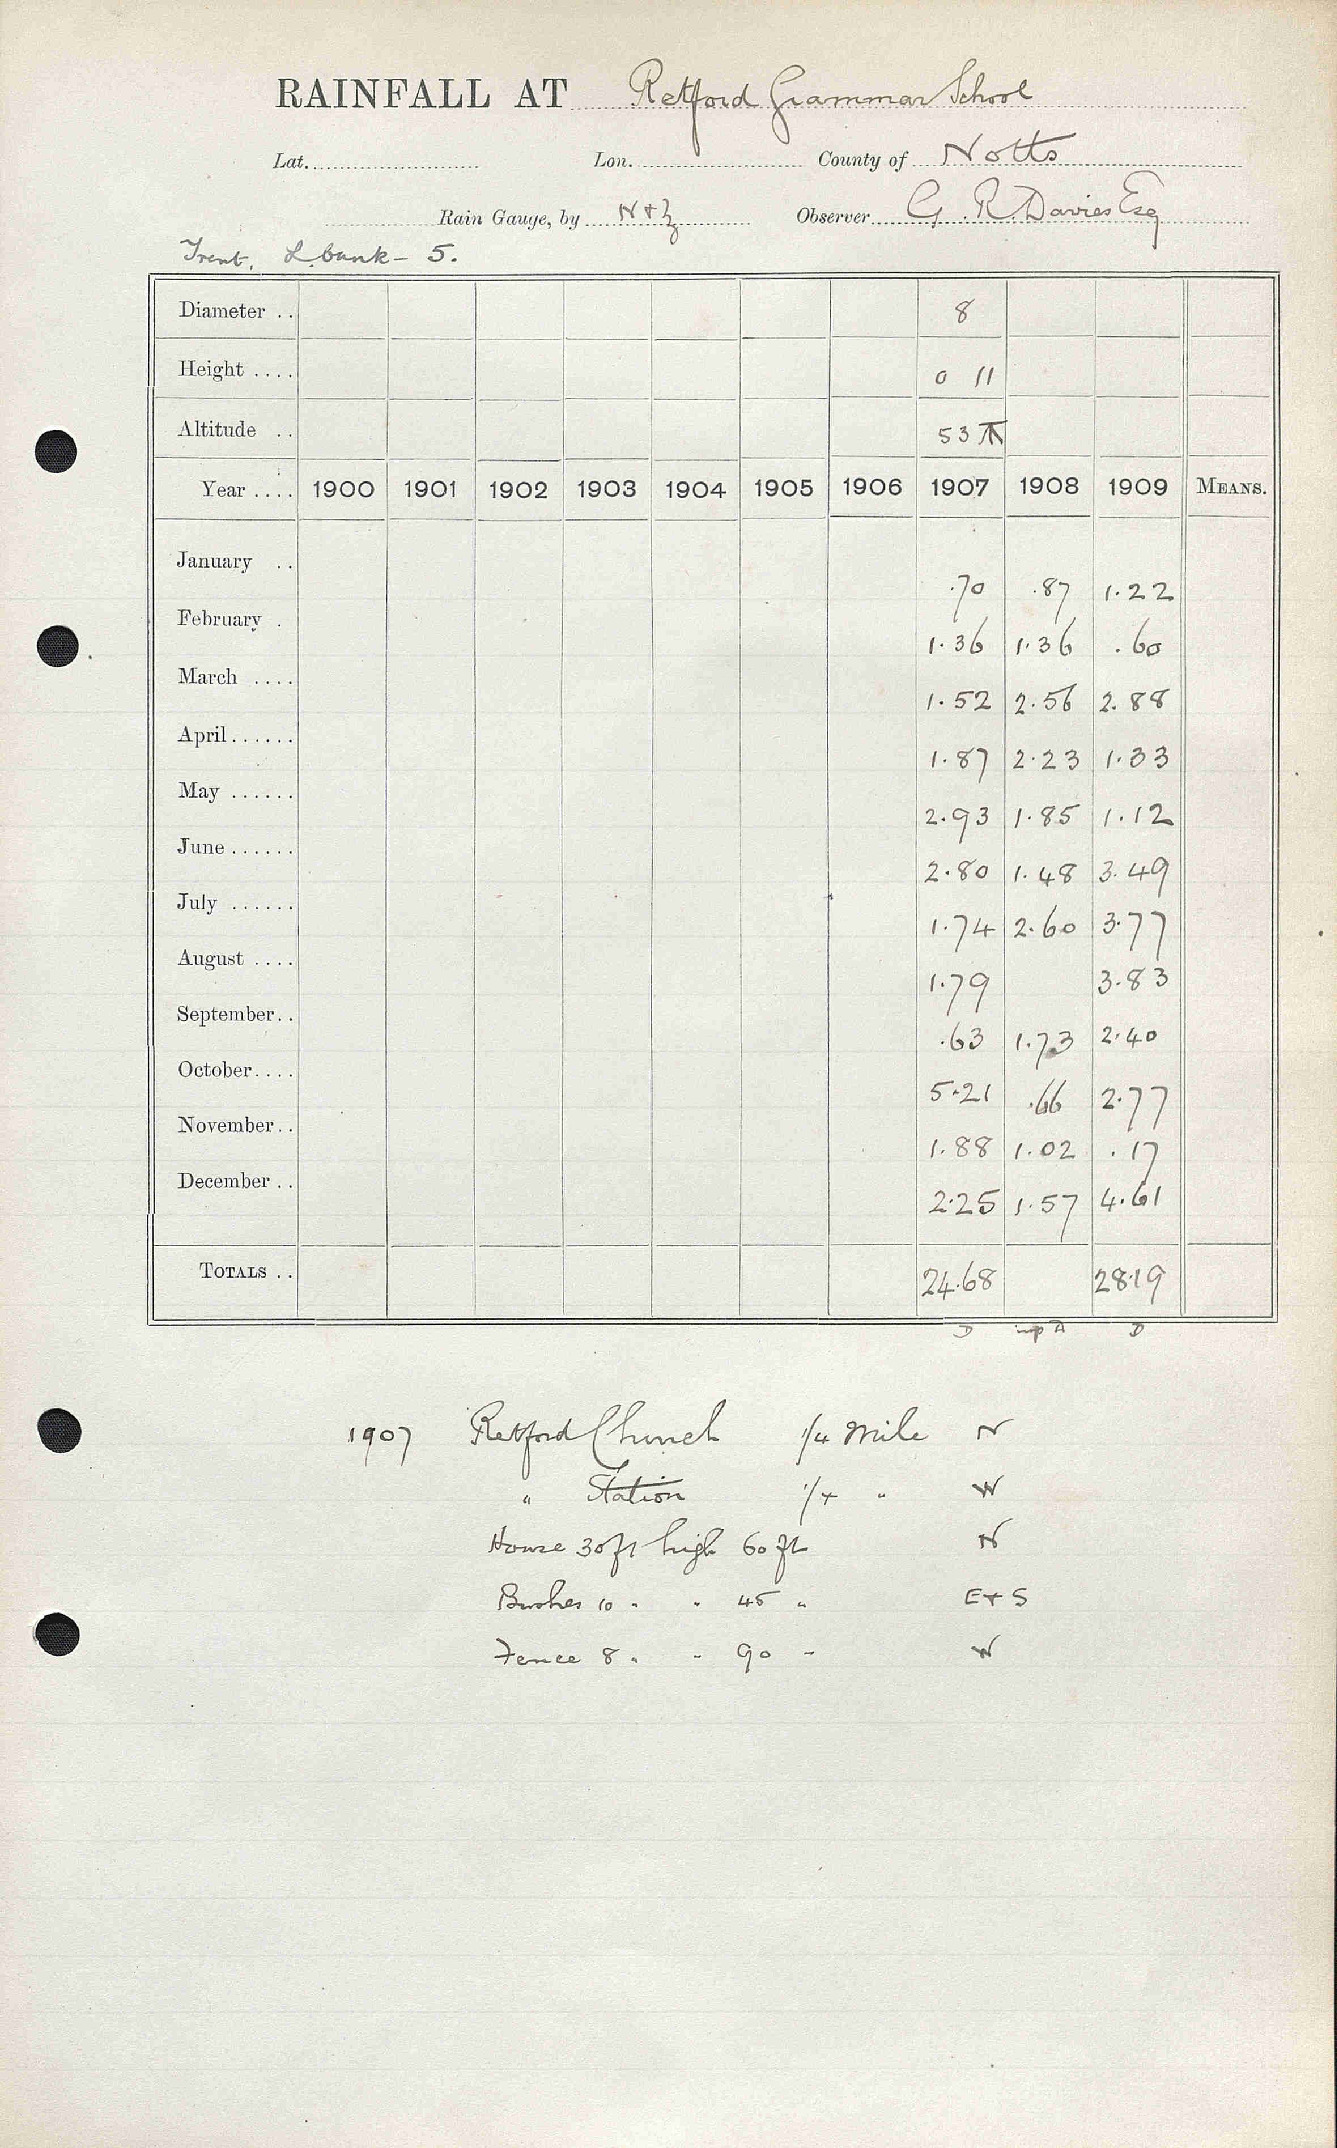 RAINFALL AT Retford Grammar School
Lat. Lon. County of Notts
Rain Gauge, by N & Z Observer G. R. Davies Esq
Trent, L. bank - 5.
Diameter .. 8
Height .... 0 11
Altitude .. 53
Year .... 1900 1901 1902 1903 1904 1905 1906 1907 1908 1909 MEANS.
January .. .70 .87 1.22
February . 1.36 1.36 .60
March .... 1.52 2.56 2.88
April...... 1.87 2.23 1.33
May ...... 2.93 1.85 1.12
June ...... 2.80 1.48 3.49
July ...... 1.74 2.60 3.77
August .... 1.79 3.83
September.. .63 1.73 2.40
October.... 5.21 .66 2.77
November.. 1.88 1.02 .17
December .. 2.25 1.57 4.61
TOTALS .. 24.68 28.19
D imp A D
1907 Retford Church 1/4 mile N
" Station 1/4 " W
House 30 ft high 60 ft N
Bushes 10 " " 45 " E & S
Fence 8 " " 90 " W